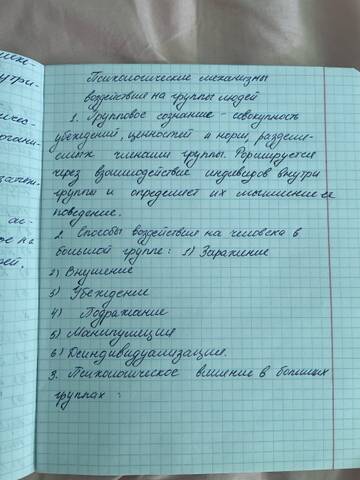 Психологические механизмы
воздействия на группы людей
1. Групповое сознание - совокупность
убеждений, ценностей и норм, разделяе-
емых членами группы. Формируется
через взаимодействие индивидов внутри
группы и определяет их мышление и
поведение.
2. Способы воздействия на человека в
большой группе: 1) Заражение
2) Внушение
3) Убеждение
4) Подражание
5) Манипуляция
6) Деиндивидуализация.
3. Психологическое влияние в больших
группах :